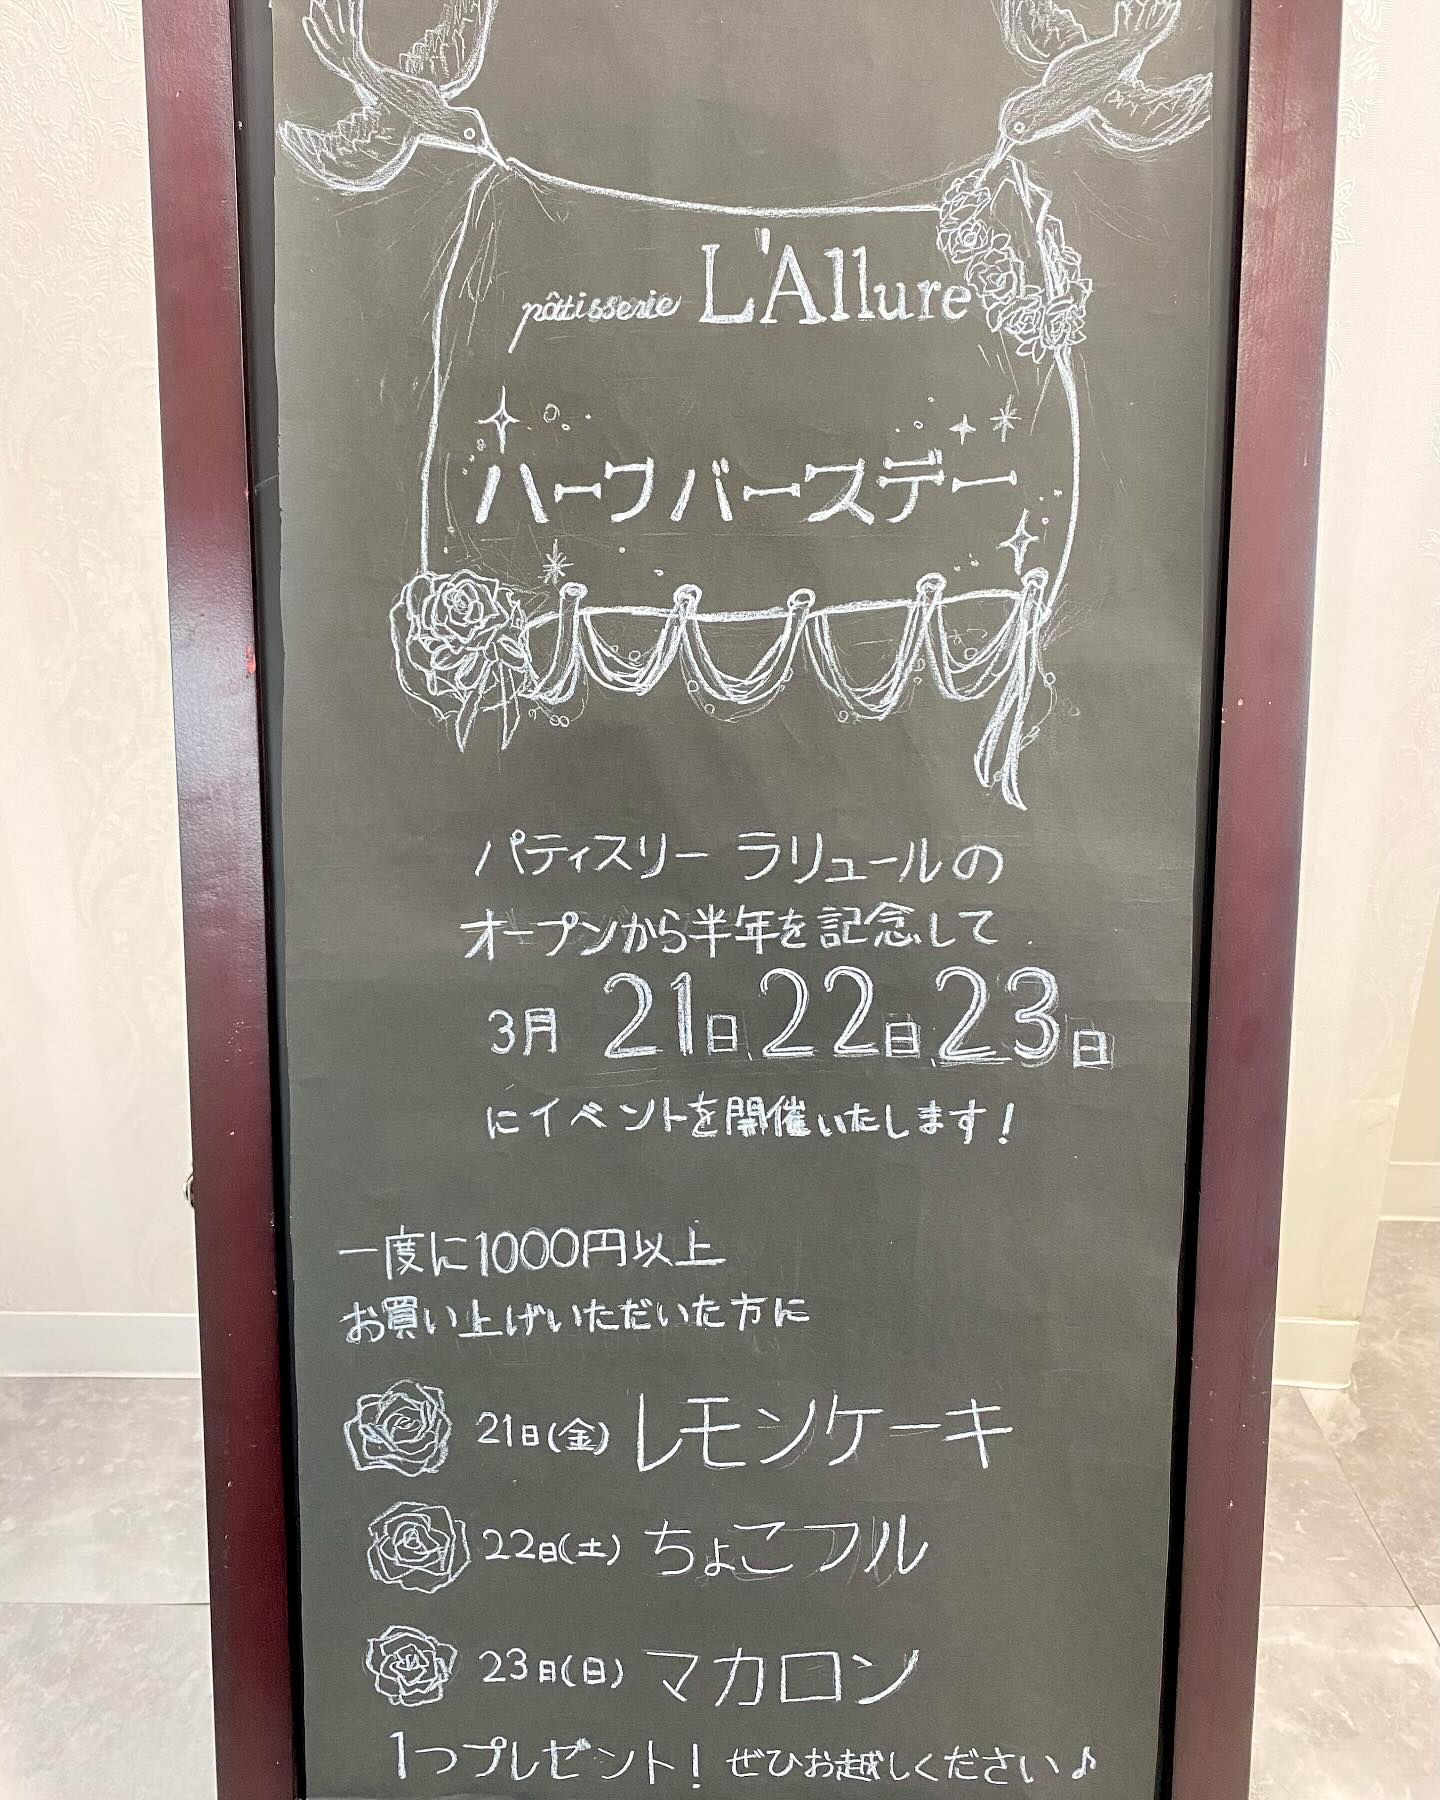 pâtisserie L'Allure
ハーフバースデー
パティスリー ラリュールの
オープンから半年を記念して
3月 21日 22日 23日
にイベントを開催いたします！
一度に1000円以上
お買い上げいただいた方に
21日(金) レモンケーキ
22日(土) ちょこフル
23日(日) マカロン
1つプレゼント！ ぜひお越しください♪